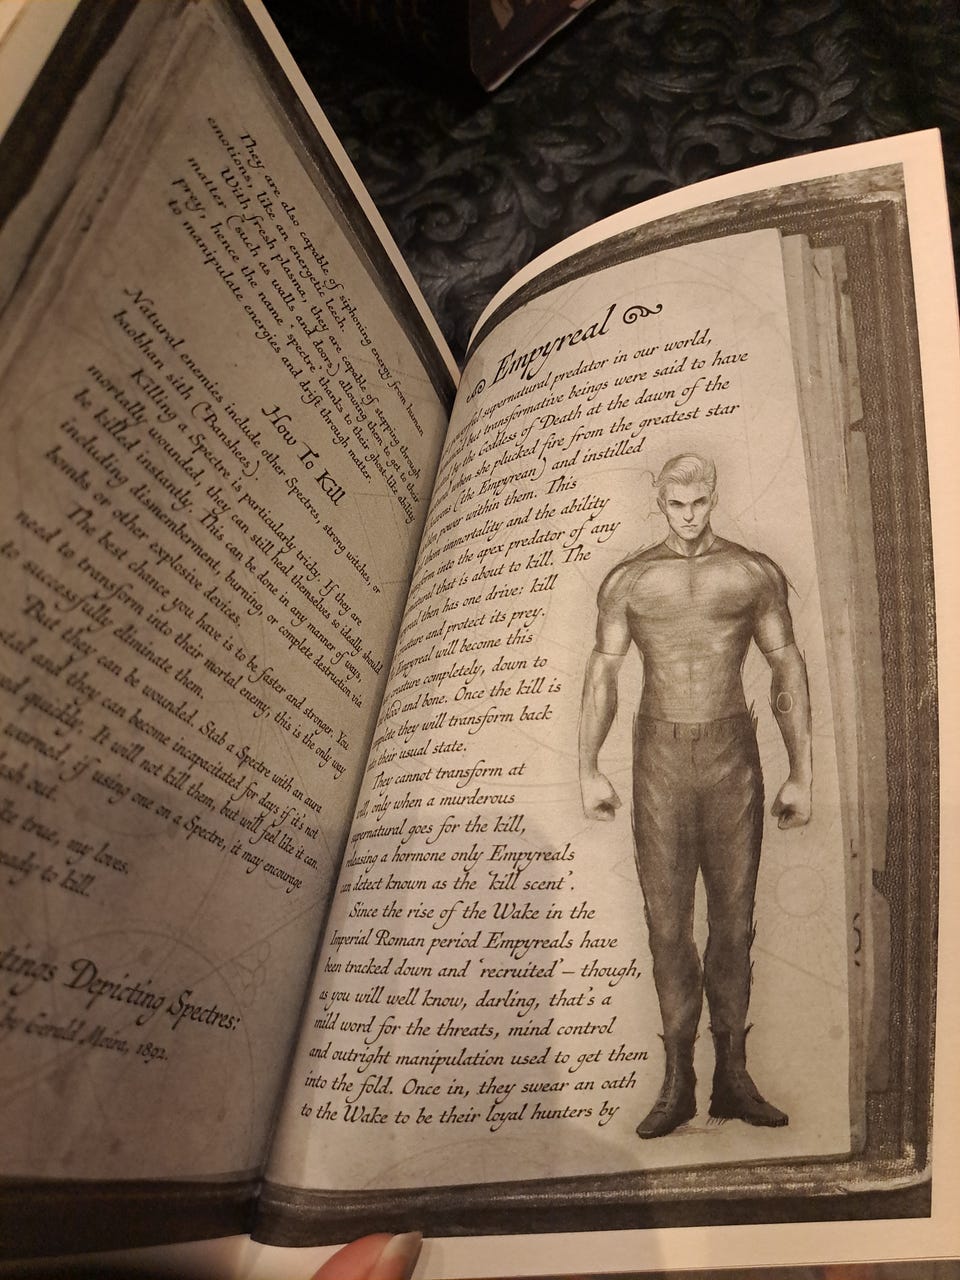 They are also capable of siphoning energy from human
emotions, like an energetic leech.
With fresh plasma, they are capable of stepping through
matter (such as walls and doors) allowing them to get to their
prey, hence the name 'spectre', thanks to their ghost-like ability
to manipulate energies and drift through matter.
How To Kill
Natural enemies include other Spectres, strong witches, or
baobhan sith ('Banshees').
Killing a Spectre is particularly tricky. If they are
mortally wounded, they can still heal themselves so ideally should
be killed instantly. This can be done in any manner of ways,
including dismemberment, burning, or complete destruction via
bombs or other explosive devices.
The best chance you have is to be faster and stronger. You
need to transform into their mortal enemy, this is the only way
to successfully eliminate them.
But they can be wounded. Stab a Spectre with an aura
and they can become incapacitated for days if it's not
quickly. It will not kill them, but will feel like it can.
warned, if using one on a Spectre, it may encourage
out.
true, my loves.
ready to kill.
Depicting Spectres:
by Gerald Moira, 1892.
Empyreal
supernatural predator in our world,
but transformative beings were said to have
by the Goddess of Death at the dawn of the
when she plucked fire from the greatest star
(the Empyrean) and instilled
power within them. This
them immortality and the ability
into the apex predator of any
that is about to kill. The
then has one drive: kill
creature and protect its prey.
Empyreal will become this
creature completely, down to
blood and bone. Once the kill is
they will transform back
their usual state.
They cannot transform at
will, only when a murderous
supernatural goes for the kill,
releasing a hormone only Empyreals
can detect known as the 'kill scent'.
Since the rise of the Wake in the
Imperial Roman period Empyreals have
been tracked down and 'recruited' – though,
as you will well know, darling, that's a
mild word for the threats, mind control
and outright manipulation used to get them
into the fold. Once in, they swear an oath
to the Wake to be their loyal hunters by